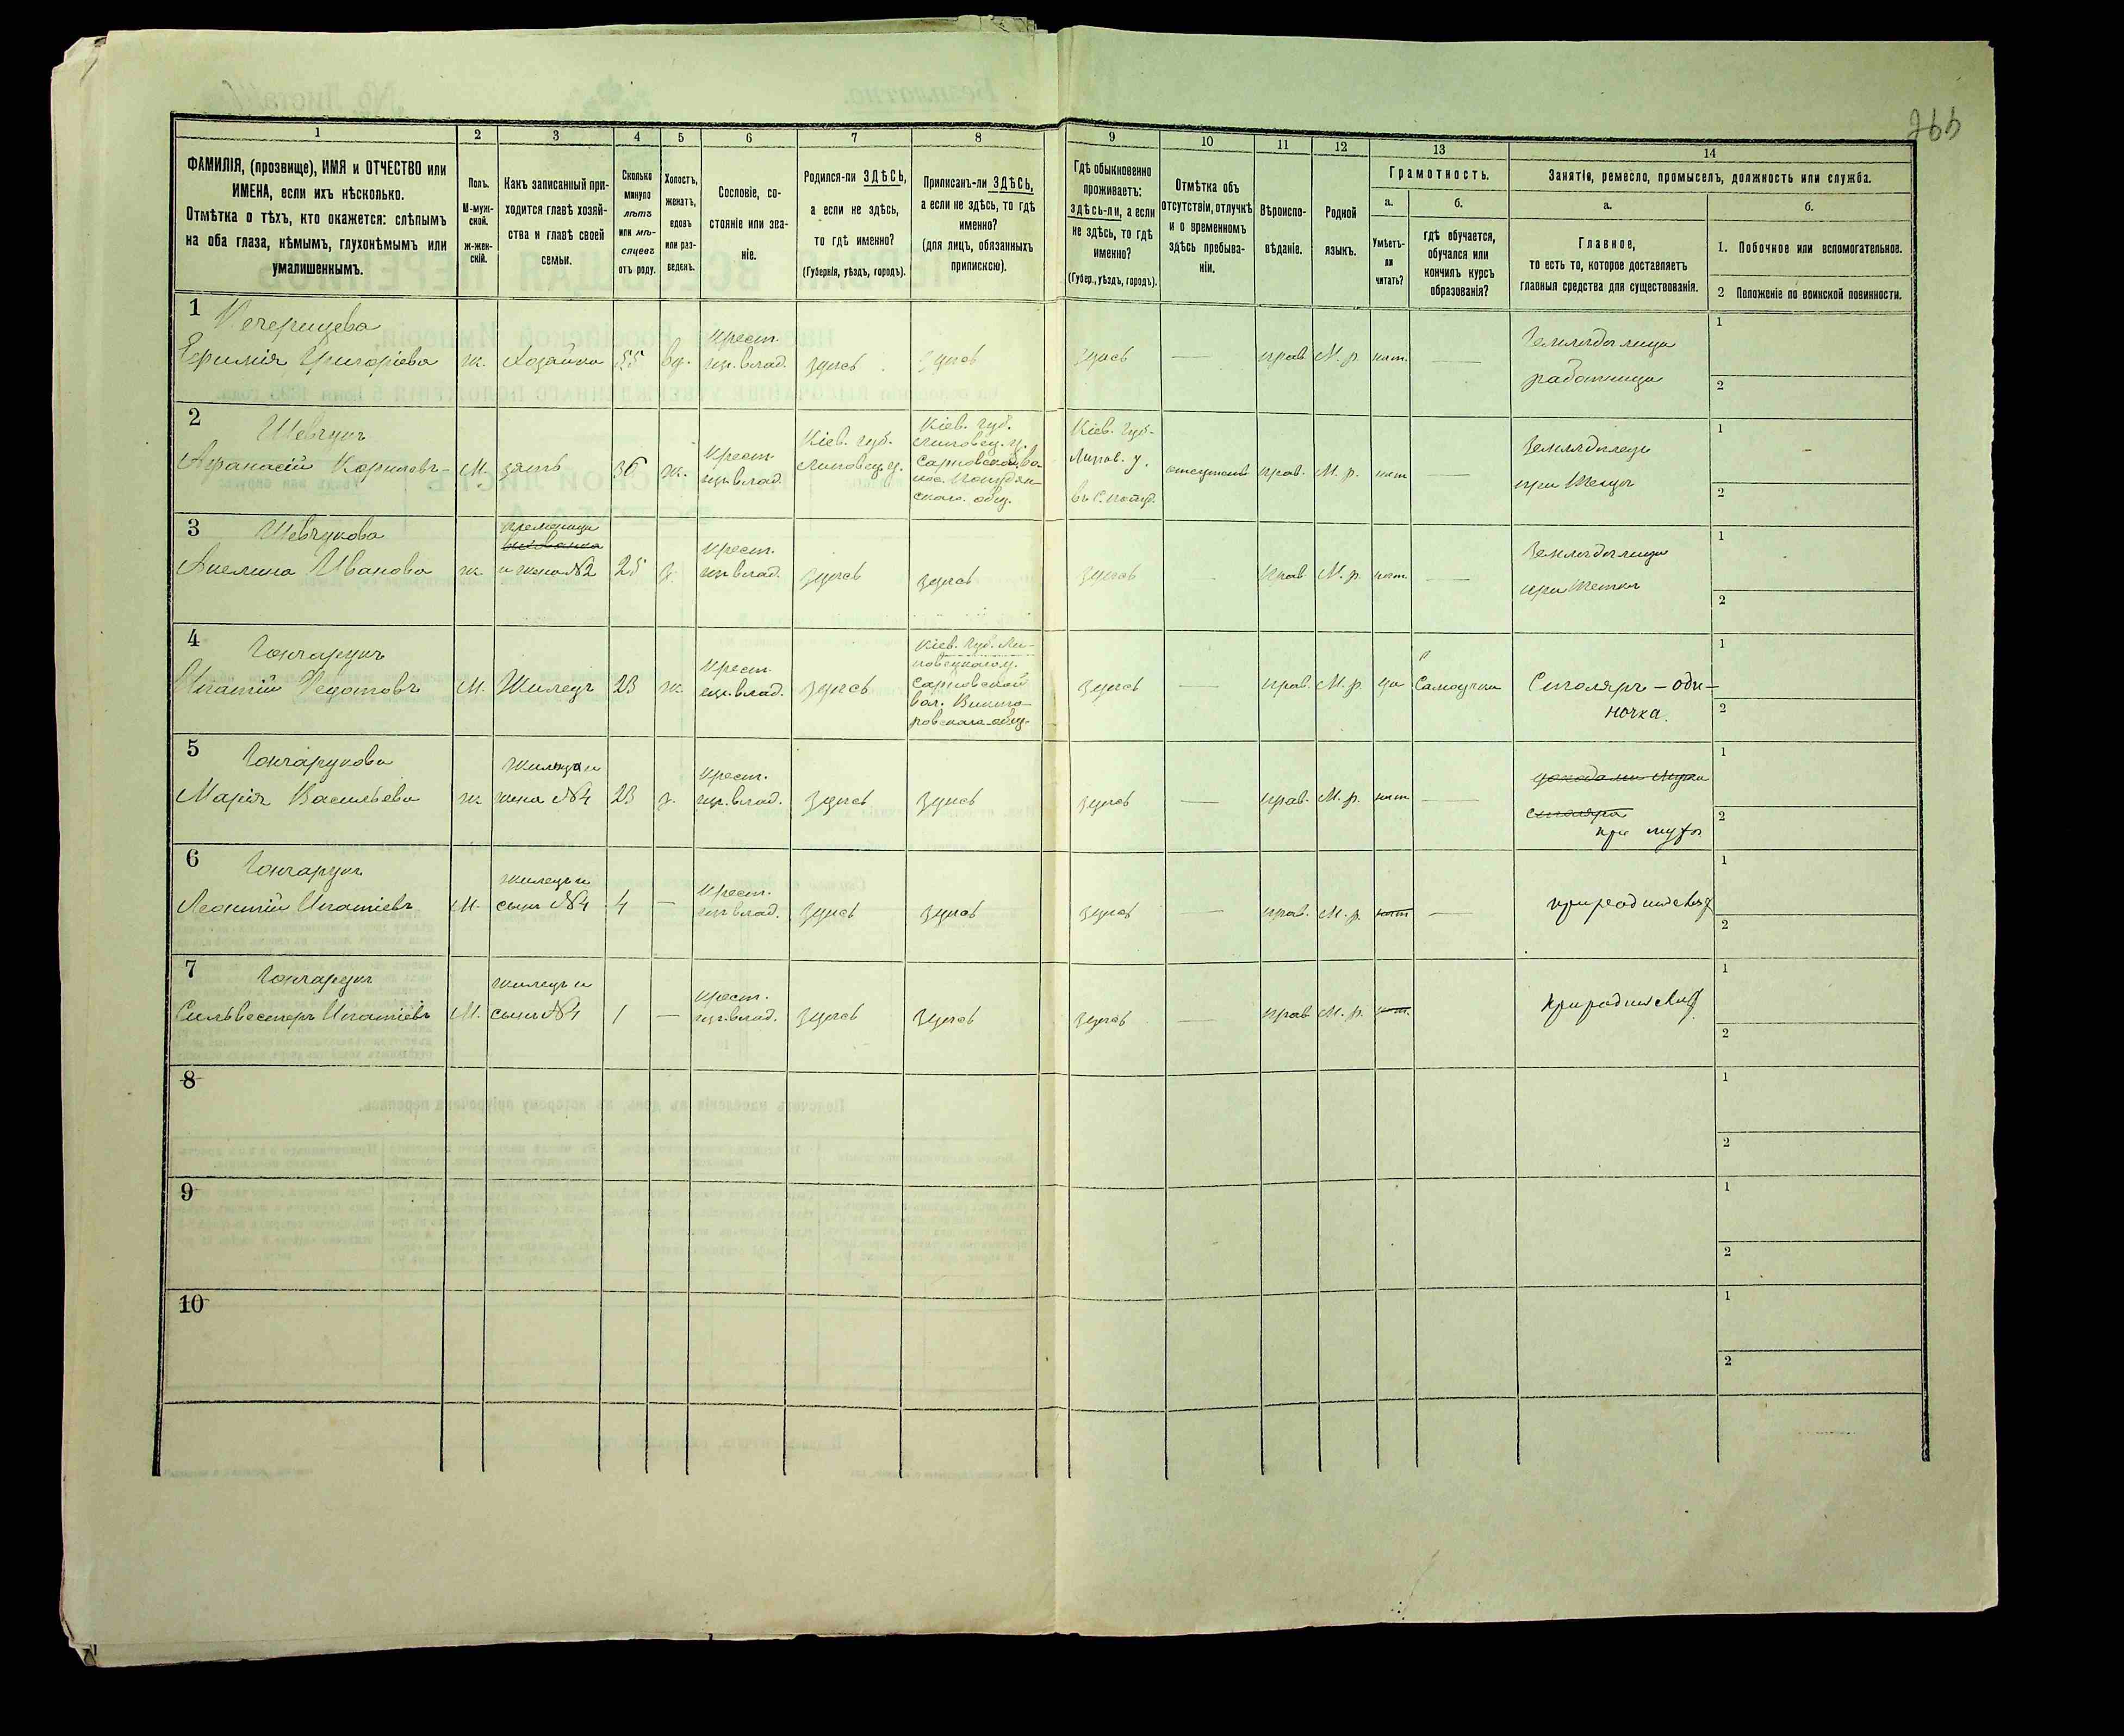 1 2 3 4 5 6 7 8 9 10 11 12 13 14
ФАМИЛІЯ, (прозвище), ИМЯ и ОТЧЕСТВО или
ИМЕНА, если ихъ нѣсколько.
Отмѣтка о тѣхъ, кто окажется: слѣпымъ
на оба глаза, нѣмымъ, глухонѣмымъ или
умалишеннымъ.
Полъ.
М-муж-
ской.
ж-жен-
скій.
Какъ записанный при-
ходится главѣ хозяй-
ства и главѣ своей
семьи.
Сколько
минуло
лѣтъ
или мѣ-
сяцевъ
отъ роду.
Холостъ,
женатъ,
вдовъ
или раз-
веденъ.
Сословіе, со-
стояніе или зва-
ніе.
Родился-ли ЗДѢСЬ,
а если не здѣсь,
то гдѣ именно?
(Губернія, уѣздъ, городъ).
Приписанъ-ли ЗДѢСЬ,
а если не здѣсь, то гдѣ
именно?
(для лицъ, обязанныхъ
припискою).
Гдѣ обыкновенно
проживаетъ:
здѣсь-ли, а если
не здѣсь, то гдѣ
именно?
(Губер., уѣздъ, городъ).
Отмѣтка объ
отсутствіи, отлучкѣ
и о временномъ
здѣсь пребыва-
ніи.
Вѣроиспо-
вѣданіе.
Родной
языкъ.
Грамотность.
а.
Умѣетъ-
ли
читать?
б.
гдѣ обучается,
обучался или
кончилъ курсъ
образованія?
Занятія, ремесло, промыселъ, должность или служба.
а.
Главное,
то есть то, которое доставляетъ
главныя средства для существованія.
б.
1. Побочное или вспомогательное.
2 Положеніе по воинской повинности.
1 Печерицева
Ефимія Григоріева ж. Хозяйка 55 вд. Крест. изъ влад. здѣсь здѣсь здѣсь — прав. М. р. нѣт. —
Земледѣлица
работница
1
2
2 Шевчукъ
Афанасій Корнѣевъ М. зять 36 ж. Крест. изъ влад.
Кіев. губ.
Липовец. у.
Кіев. губ.
Липовец. у.
Кіев. губ.
Липов. у.
прав. М. р. нѣт —
Земледѣлецъ
при тещѣ
1
2
3 Шевчукова
племяница
Ивановa ж. и жена №2 25 з. Крест. изъ влад. здѣсь здѣсь здѣсь прав. М. р. нѣт. —
Земледѣлица
при теткѣ
1
2
4 Гончарукъ
Игнатій Федотовъ М. Жилецъ 23 ж. Крест. изъ влад. здѣсь
Кіев. губ. Ли-
повецкого у.
здѣсь — прав. М. р. да Самоучка
Столяръ — оди-
ночка.
1
2
5 Гончарукова
Марія Васильева ж. жена №4 23 з. Крест. изъ влад. здѣсь здѣсь здѣсь — прав. М. р. нѣт —
столяра
при мужѣ
1
2
6 Гончарукъ
Леонтій Игнатіевъ М.
жилецъ и
сынъ №4 4 — Крест. изъ влад. здѣсь здѣсь здѣсь — прав. М. р. нѣт —
при родителяхъ
1
2
7 Гончарукъ
Сильвестеръ Игнатіевъ М.
жилецъ и
сынъ №4 1 — Крест. изъ влад. здѣсь здѣсь здѣсь — прав. М. р. нѣт.
при родителяхъ
1
2
8
1
2
9
1
2
10
1
2